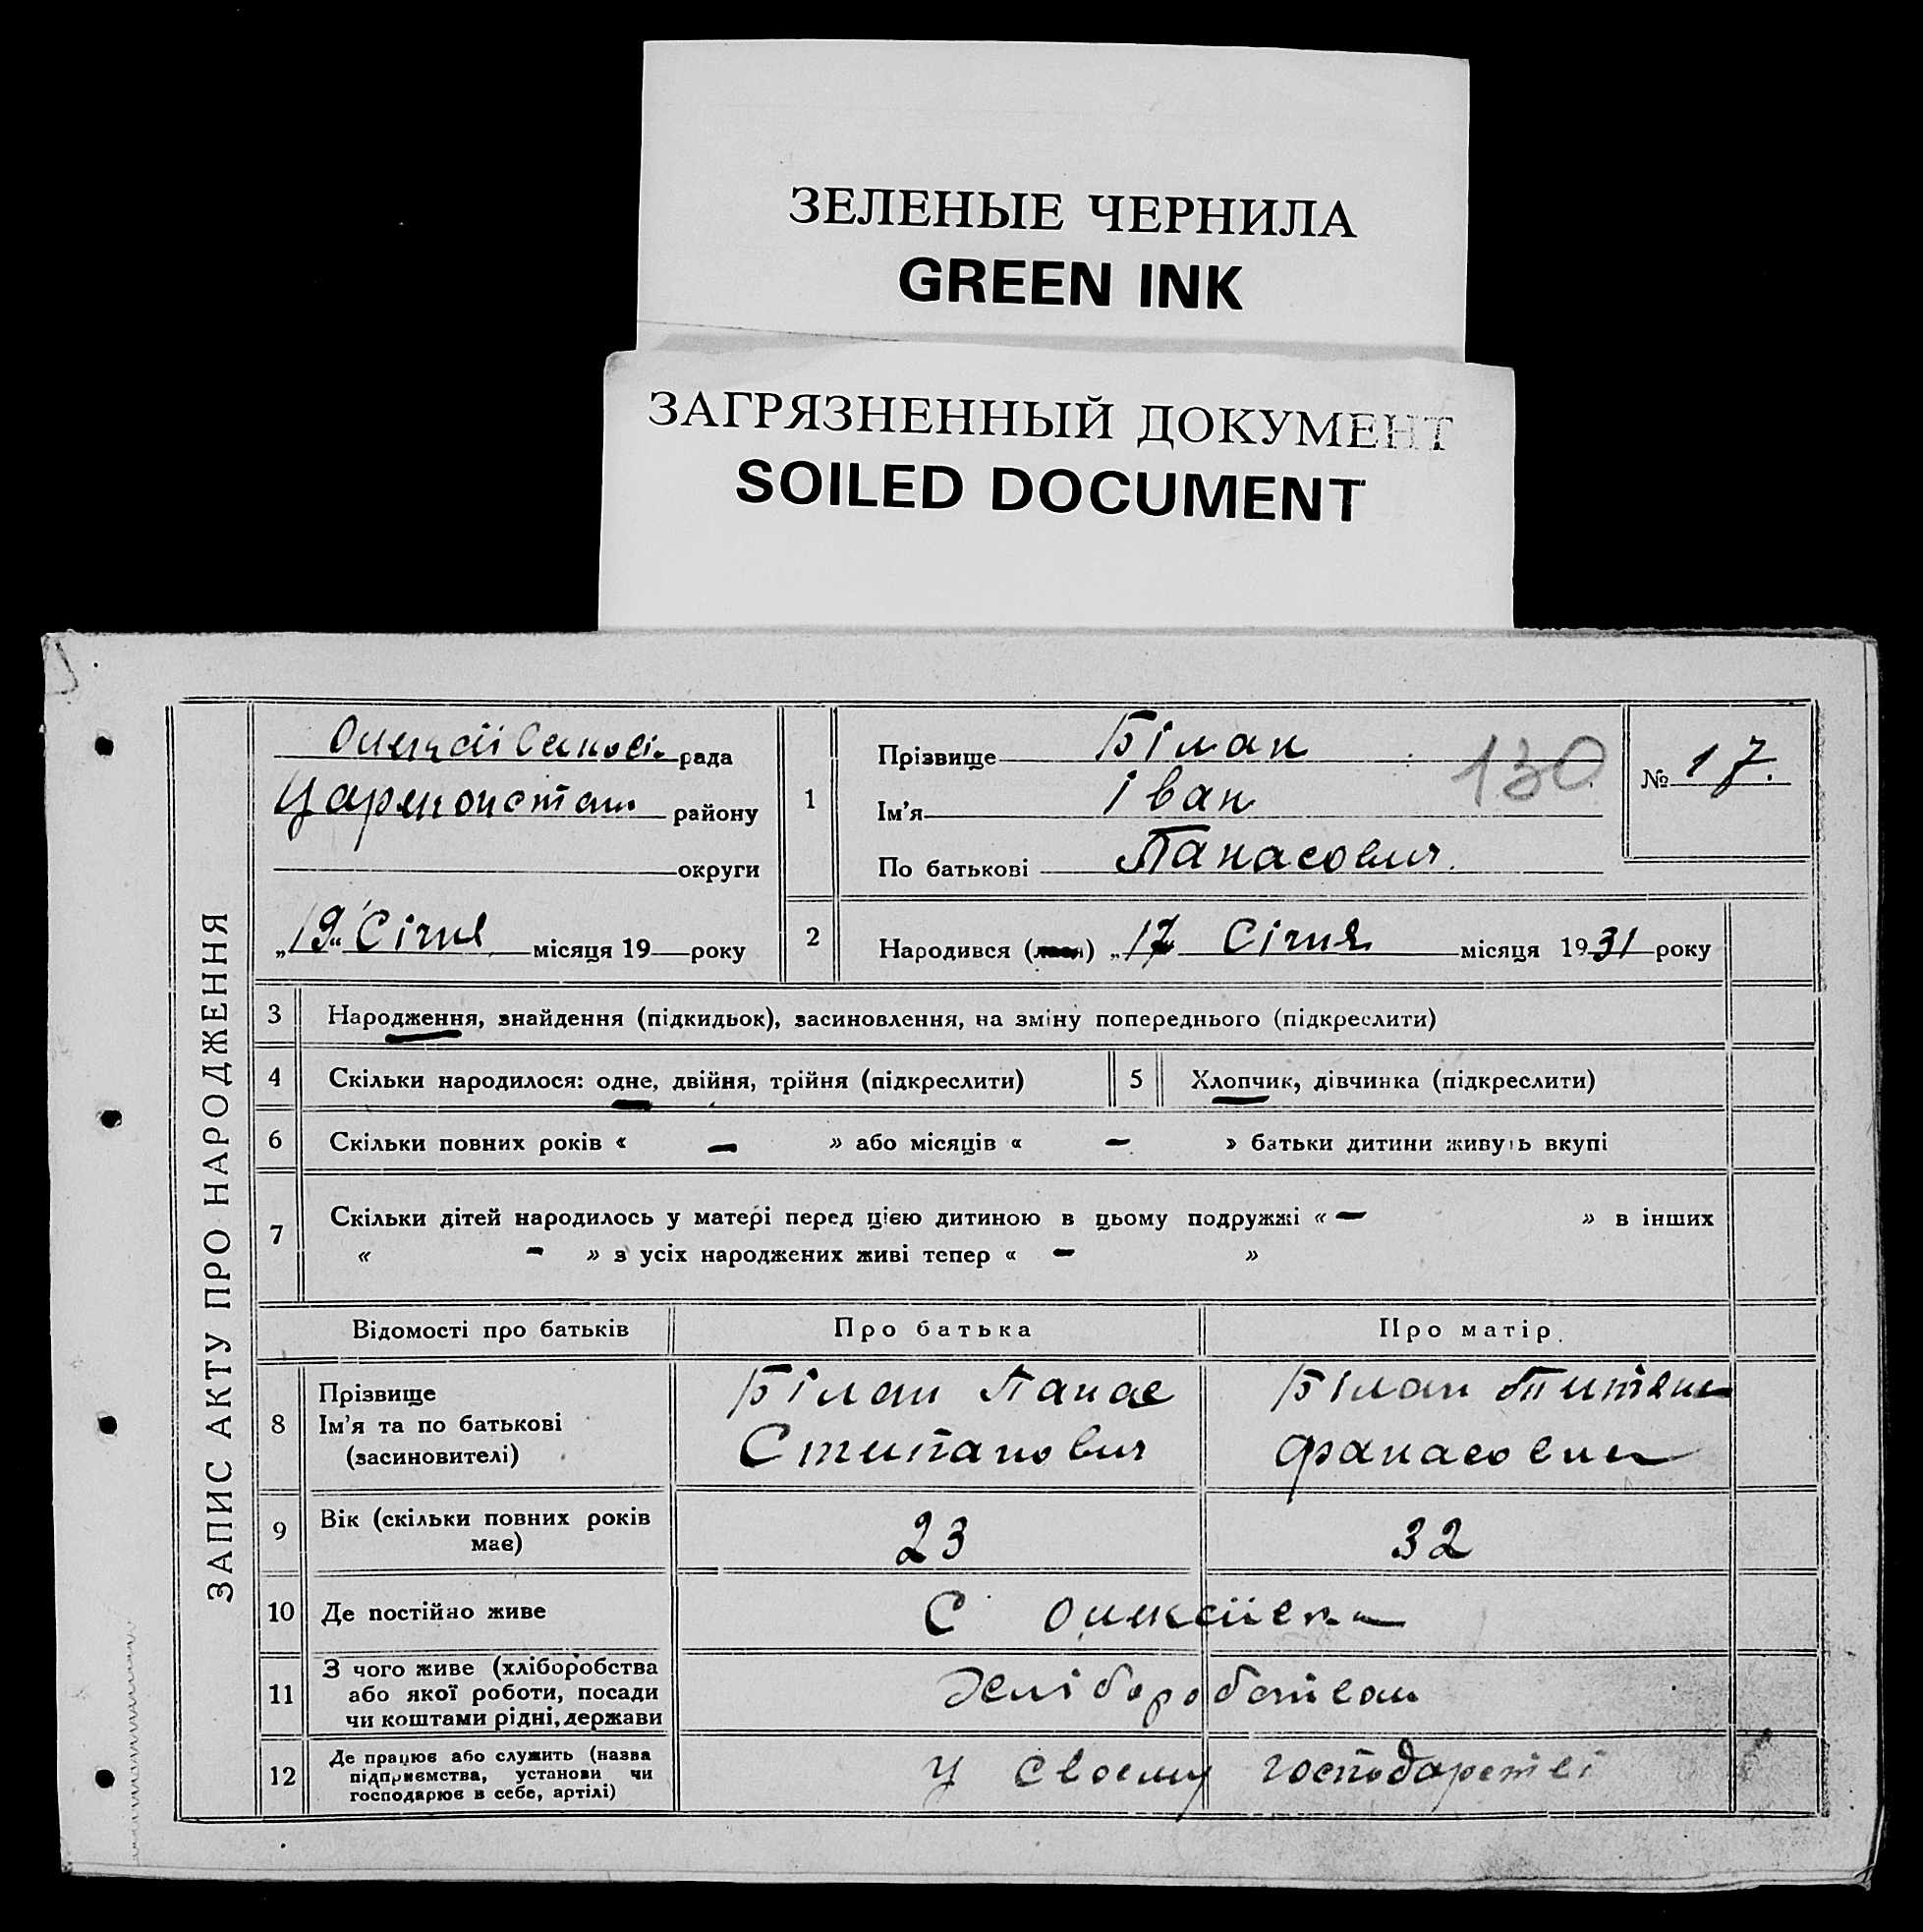 ЗЕЛЕНЫЕ ЧЕРНИЛА
GREEN INK
ЗАГРЯЗНЕННЫЙ ДОКУМЕНТ
SOILED DOCUMENT
ЗАПИС АКТУ ПРО НАРОДЖЕННЯ
рада
району
округи
„19“ Січня місяця 19 року
1
Прізвище Білан
Ім'я Іван
По батькові Панасович.
130
№ 17.
2
Народився ( ) „17 Січня місяця 1931 року
3 Народження, знайдення (підкидьок), засиновлення, на зміну попереднього (підкреслити)
4 Скільки народилося: одне, двійня, трійня (підкреслити)
5 Хлопчик, дівчинка (підкреслити)
6 Скільки повних років « – » або місяців « – » батьки дитини живуть вкупі
7 Скільки дітей народилось у матері перед цією дитиною в цьому подружжі « – » в інших
« – » з усіх народжених живі тепер « – »
Відомості про батьків
Про батька
Про матір.
8
Прізвище
Ім'я та по батькові
(засиновителі)
Білан Панас
Степанович
Білан
9
Вік (скільки повних років
має)
23
32
10 Де постійно живе
С Олексіївка
11
З чого живе (хліборобства
або якої роботи, посади
чи коштами рідні, держави
12
Де працює або служить (назва
підприємства, установи чи
господарює в себе, артілі)
У своєму господарстві